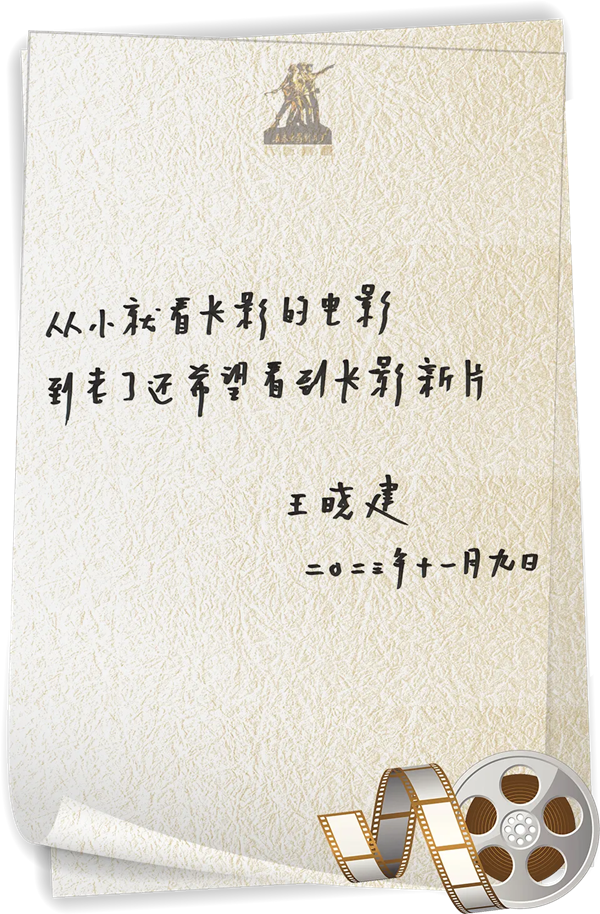 从小就看长影的电影
到老了还希望看到长影新片
王晓建
二〇二三年十一月九日